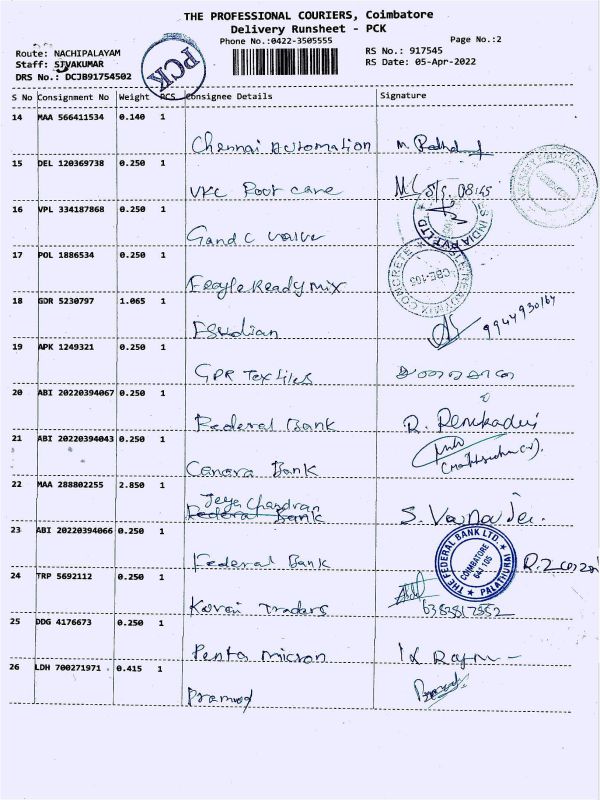 THE PROFESSIONAL COURIERS, Coimbatore
Delivery Runsheet - PCK
Phone No.:0422-3505555
Page No.:2
Route: NACHIPALAYAM
Staff: SIVAKUMAR
DRS No.: DCJB91754502
PCK
RS No.: 917545
RS Date: 05-Apr-2022
S No Consignment No Weight PCS Consignee Details Signature
14 MAA 566411534 0.140 1
Chennai Automation M
15 DEL 120369738 0.250 1
VKC Foot care 5/4 08:45
16 VPL 334187868 0.250 1
G and C valve
INDIA PVT LTD
17 POL 1886534 0.250 1
Eagle Ready mix
READY MIX CONCRETE
CBE-105
18 GDR 5230797 1.065 1
9944930164
19 APK 1249321 0.250 1
GPR Textiles
20 ABI 20220394067 0.250 1
Federal Bank R. Renukadevi
21 ABI 20220394043 0.250 1
Canara Bank
22 MAA 288802255 2.850 1
Jeya Chandran
Federal Bank S.
23 ABI 20220394066 0.250 1
Federal Bank
THE FEDERAL BANK LTD.
COIMBATORE
641 105
PALATHURAI
24 TRP 5692112 0.250 1
Kovai Traders
25 DDG 4176673 0.250 1
Penta micron
26 LDH 700271971 0.415 1
Pramod